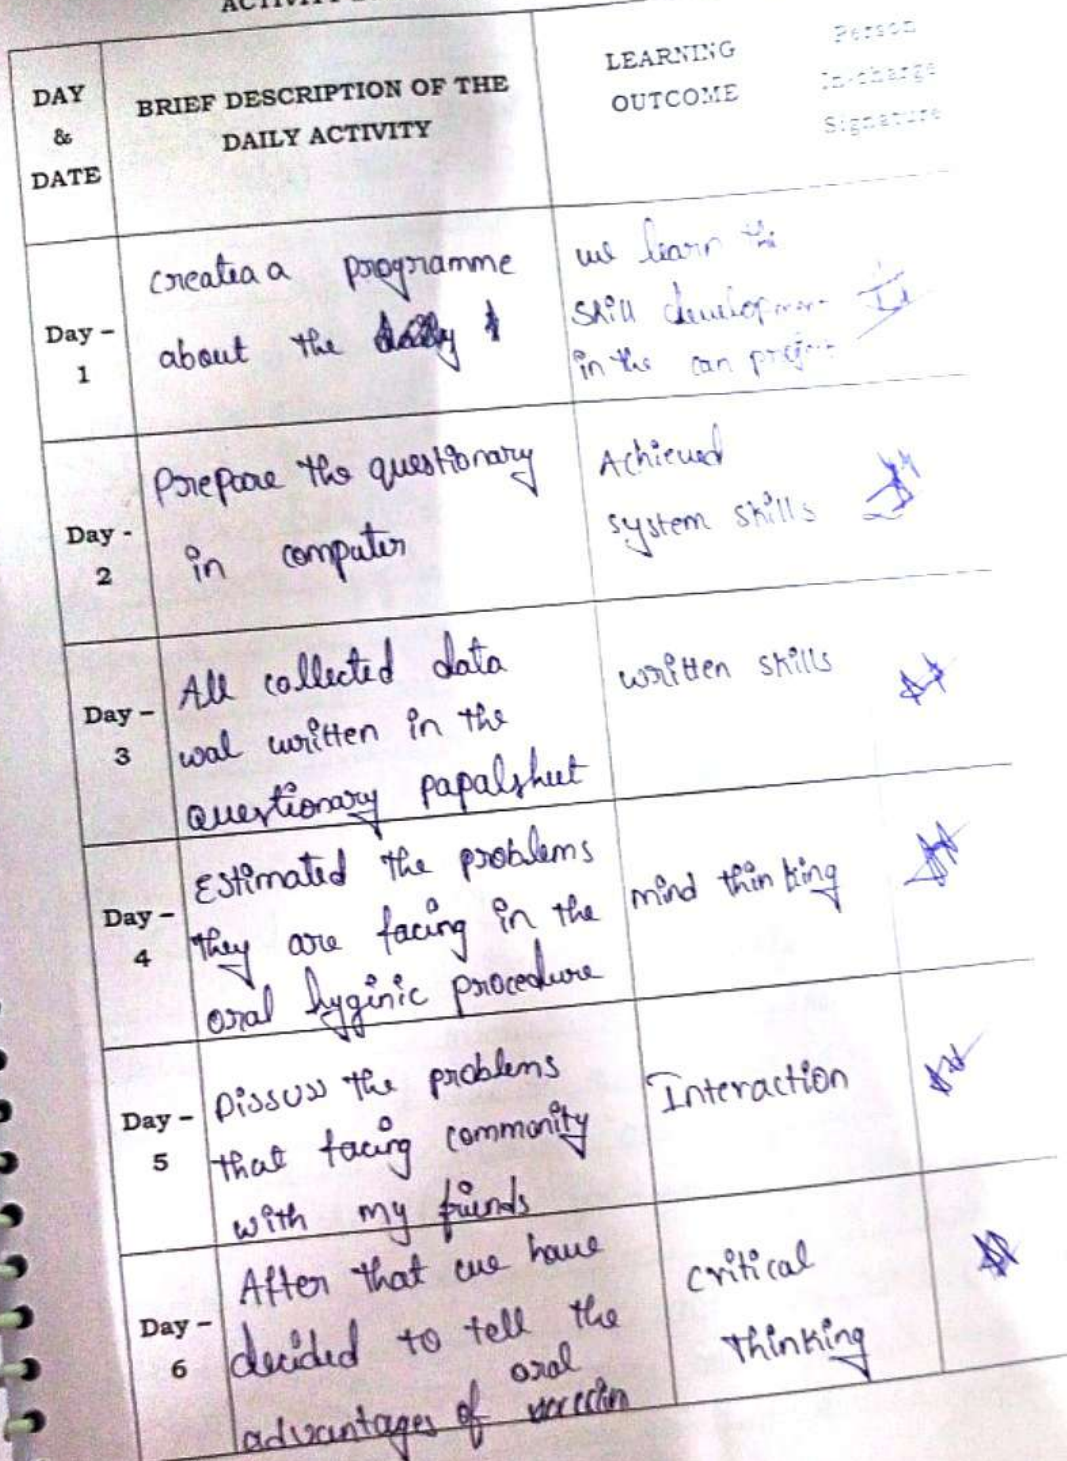 DAY
&
DATE
BRIEF DESCRIPTION OF THE
DAILY ACTIVITY
LEARNING
OUTCOME
Person
In-charge
Signature
Day –
1
createa a programme
about the
we learn the
skill
in the can
Day -
2
prepare the questionary
in computer
Achieved
system skills
Day –
3
All collected data
wal written in the
questionary papalshut
written skills
Day –
4
Estimated the problems
they are facing in the
oral hyginic procedure
mind thinking
Day –
5
Dissuss the problems
that facing commonity
with my friends
Interaction
Day –
6
After that we have
decided to tell the
oral
advantages of
critical
thinking